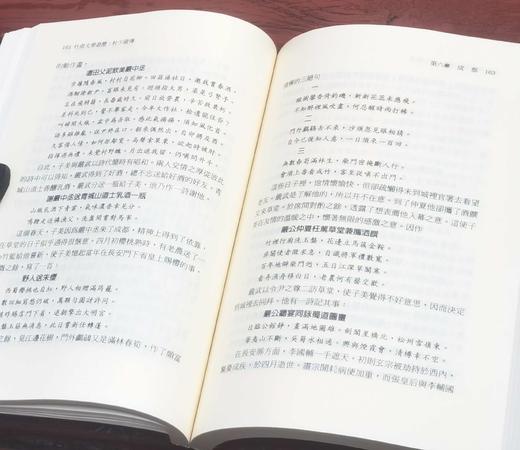 162 杜甫文學遊歷：杜少陵傳
的動作畫：
遭田父泥飲美嚴中丞
步屧隨春風，村村自花柳。田翁逼社日，邀我嘗春酒。
酒酣誇新尹，畜眼未見有。迴頭指大男，渠是弓弩手。
名在飛騎籍，長番歲時久。前日放營農，辛苦救衰朽。
差科死則已，誓不舉家走。今年大作社，拾遺能住否。
叫婦開大瓶，盆中為吾取。感此氣揚揚，須知風化首。
語多雖雜亂，說尹終在口。朝來偶然出，自卯將及酉。
久客惜人情，如何拒鄰叟。高聲索果栗，欲起時被肘。
指揮過無禮，未覺村野醜。月出遮我留，仍嗔問升斗。
自此，子美與嚴武以詩代簡時有唱和。兩人交情之厚從彼此
的詩中可以領知。嚴武得到了好酒，總不忘送給好酒的好友，青
城山道士香釀乳酒，嚴武分送一瓶給子美，他乃作一詩謝他。
謝嚴中丞送青城山道士乳酒一瓶
山瓶乳酒下青雲，氣味濃香幸見分。
鳴鞭走送憐漁父，洗盞開嘗對馬軍。
這個春天，子美因嚴中丞來了成都，精神上得到了依靠，
草堂的日子似乎過得很愜意，四月初櫻桃熟時，有老農送了一
竹籃給他嘗新，使子美憶起當年在長安門下省皇上賜櫻的事，
之餘，寫了一首：
野人送朱櫻
西蜀櫻桃也自紅，野人相贈滿筠籠。
數回細寫愁仍破，萬顆勻圓訝許同。
憶昨賜霑門下省，退朝擎出大明宮。
金盤玉筯無消息，此日嘗新任轉蓬。
之餘，見江邊花樹，門外鸕鶿又是滿林春筍，作了頗富
第六章　成　都　163
情懷的三絕句
一
楸樹馨香倚釣磯，斬新花蕊未應飛。
不如醉裡風吹盡，何忍醒時雨打稀。
二
門外鸕鶿去不來，沙頭忽見眼相猜。
自今已後知人意，一日須來一百回。
三
無數春筍滿林生，柴門密掩斷人行。
會須上番看成竹，客至從嗔不出迎。
嚴公仲夏枉駕草堂兼攜酒饌
竹裡行廚洗玉盤，花邊立馬簇金鞍。
非關使者徵求急，自識將軍禮數寬。
百年地僻柴門迥，五月江深草閣寒。
看弄漁舟移白日，老農何有罄交歡。
嚴武以令尹之尊二訪草堂，使子美覺得不好意思，因而決定
到城裡去回拜，他有一詩記其事：
嚴公廳宴同詠蜀道圖畫
日臨公館靜，畫滿地圖雄。劍閣星橋北，松州雪嶺東。
華夷山不斷，吳蜀水相通。興與煙霞會，清樽幸不空。